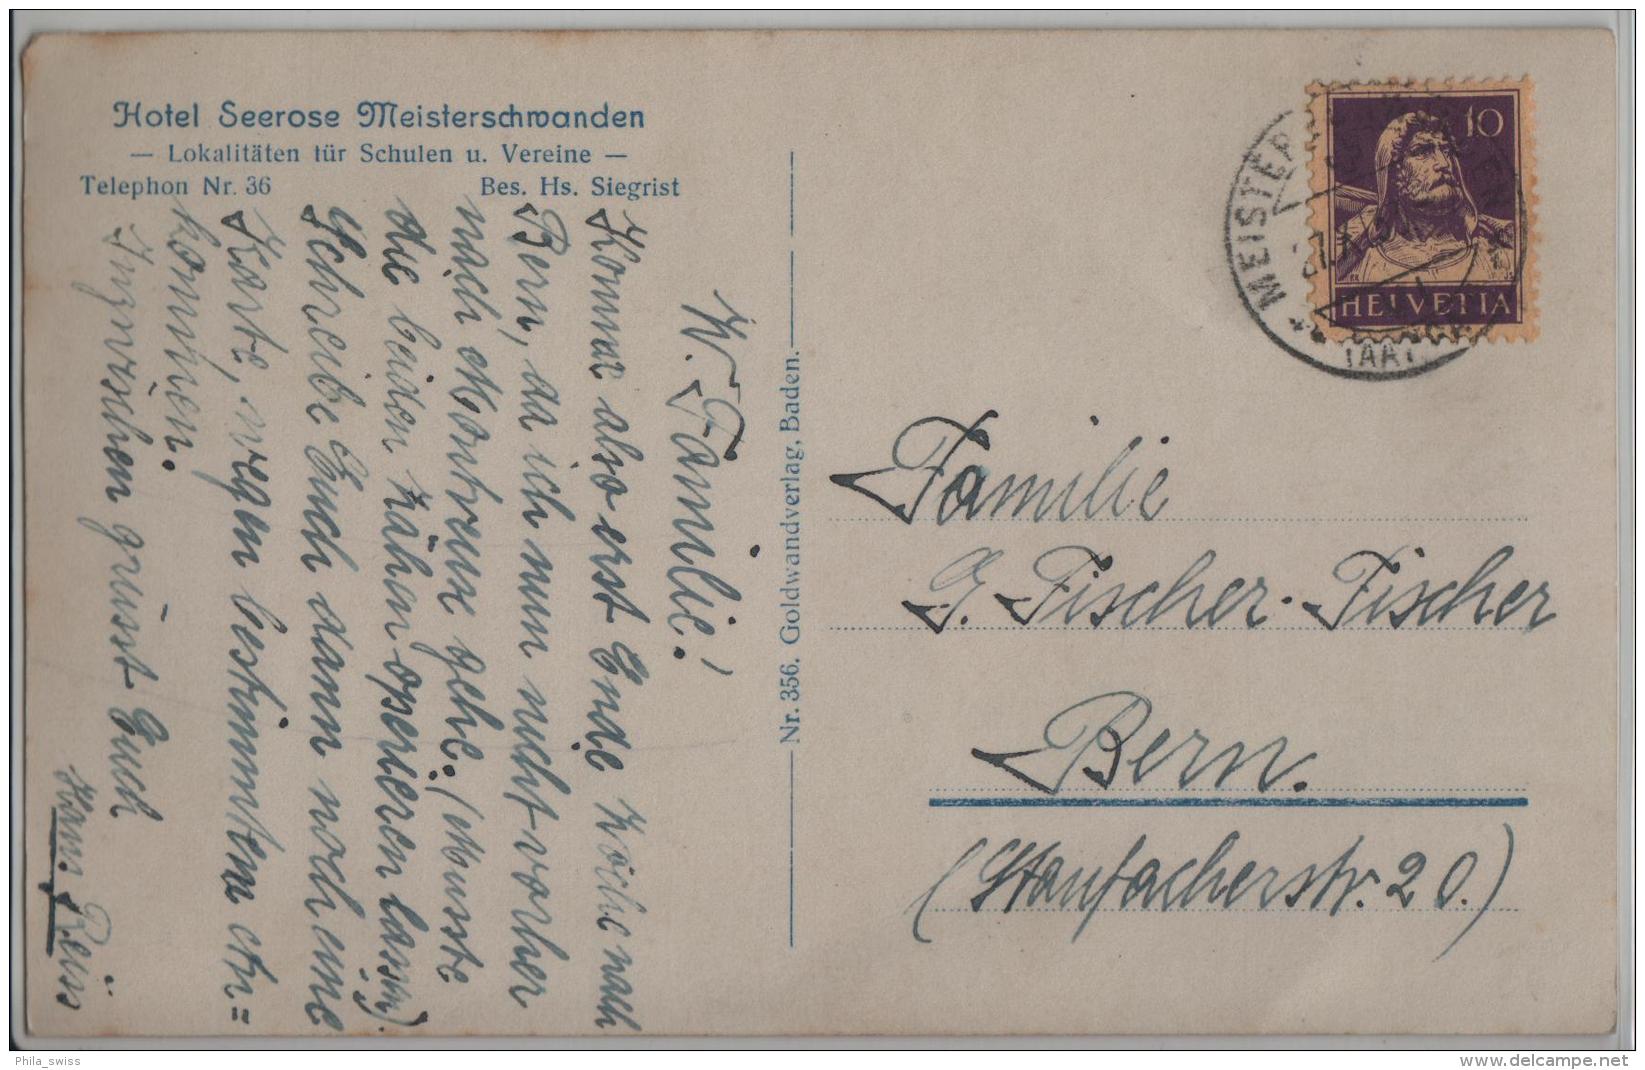 Hotel Seerose Meisterschwanden
— Lokalitäten für Schulen u. Vereine —
Telephon Nr. 36 Bes. Hs. Siegrist
W. Familie!
Komme also erst Ende Woche nach
Bern, da ich nun nicht vorher
nach Montreux gehe. (Musste
die beiden Zähen operieren lassen).
Schreibe Euch dann noch eine
Karte, wegen bestimmtem An=
kommen.
Inzwischen grüsst Euch
Hans Reiss
Nr. 356. Goldwandverlag, Baden.
10
HELVETIA
MEISTER
(AAR
Familie
G. Fischer-Fischer
Bern.
(Stauffacherstr. 20.)
Phila_swiss
www.delcampe.net